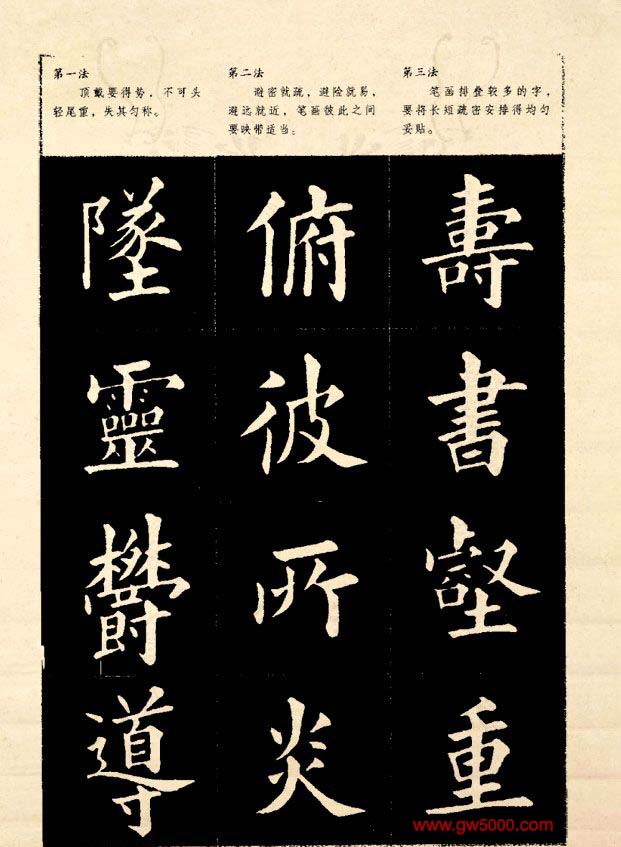 第一法
顶戴要得势，不可头
轻尾重，失其匀称。
第二法
避密就疏，避险就易，
避远就近，笔画彼此之间
要映带适当。
第三法
笔画排叠较多的字，
要将长短疏密安排得均匀
妥贴。
墜
靈
欝
導
俯
彼
所
炎
壽
書
壑
重
www.gw5000.com